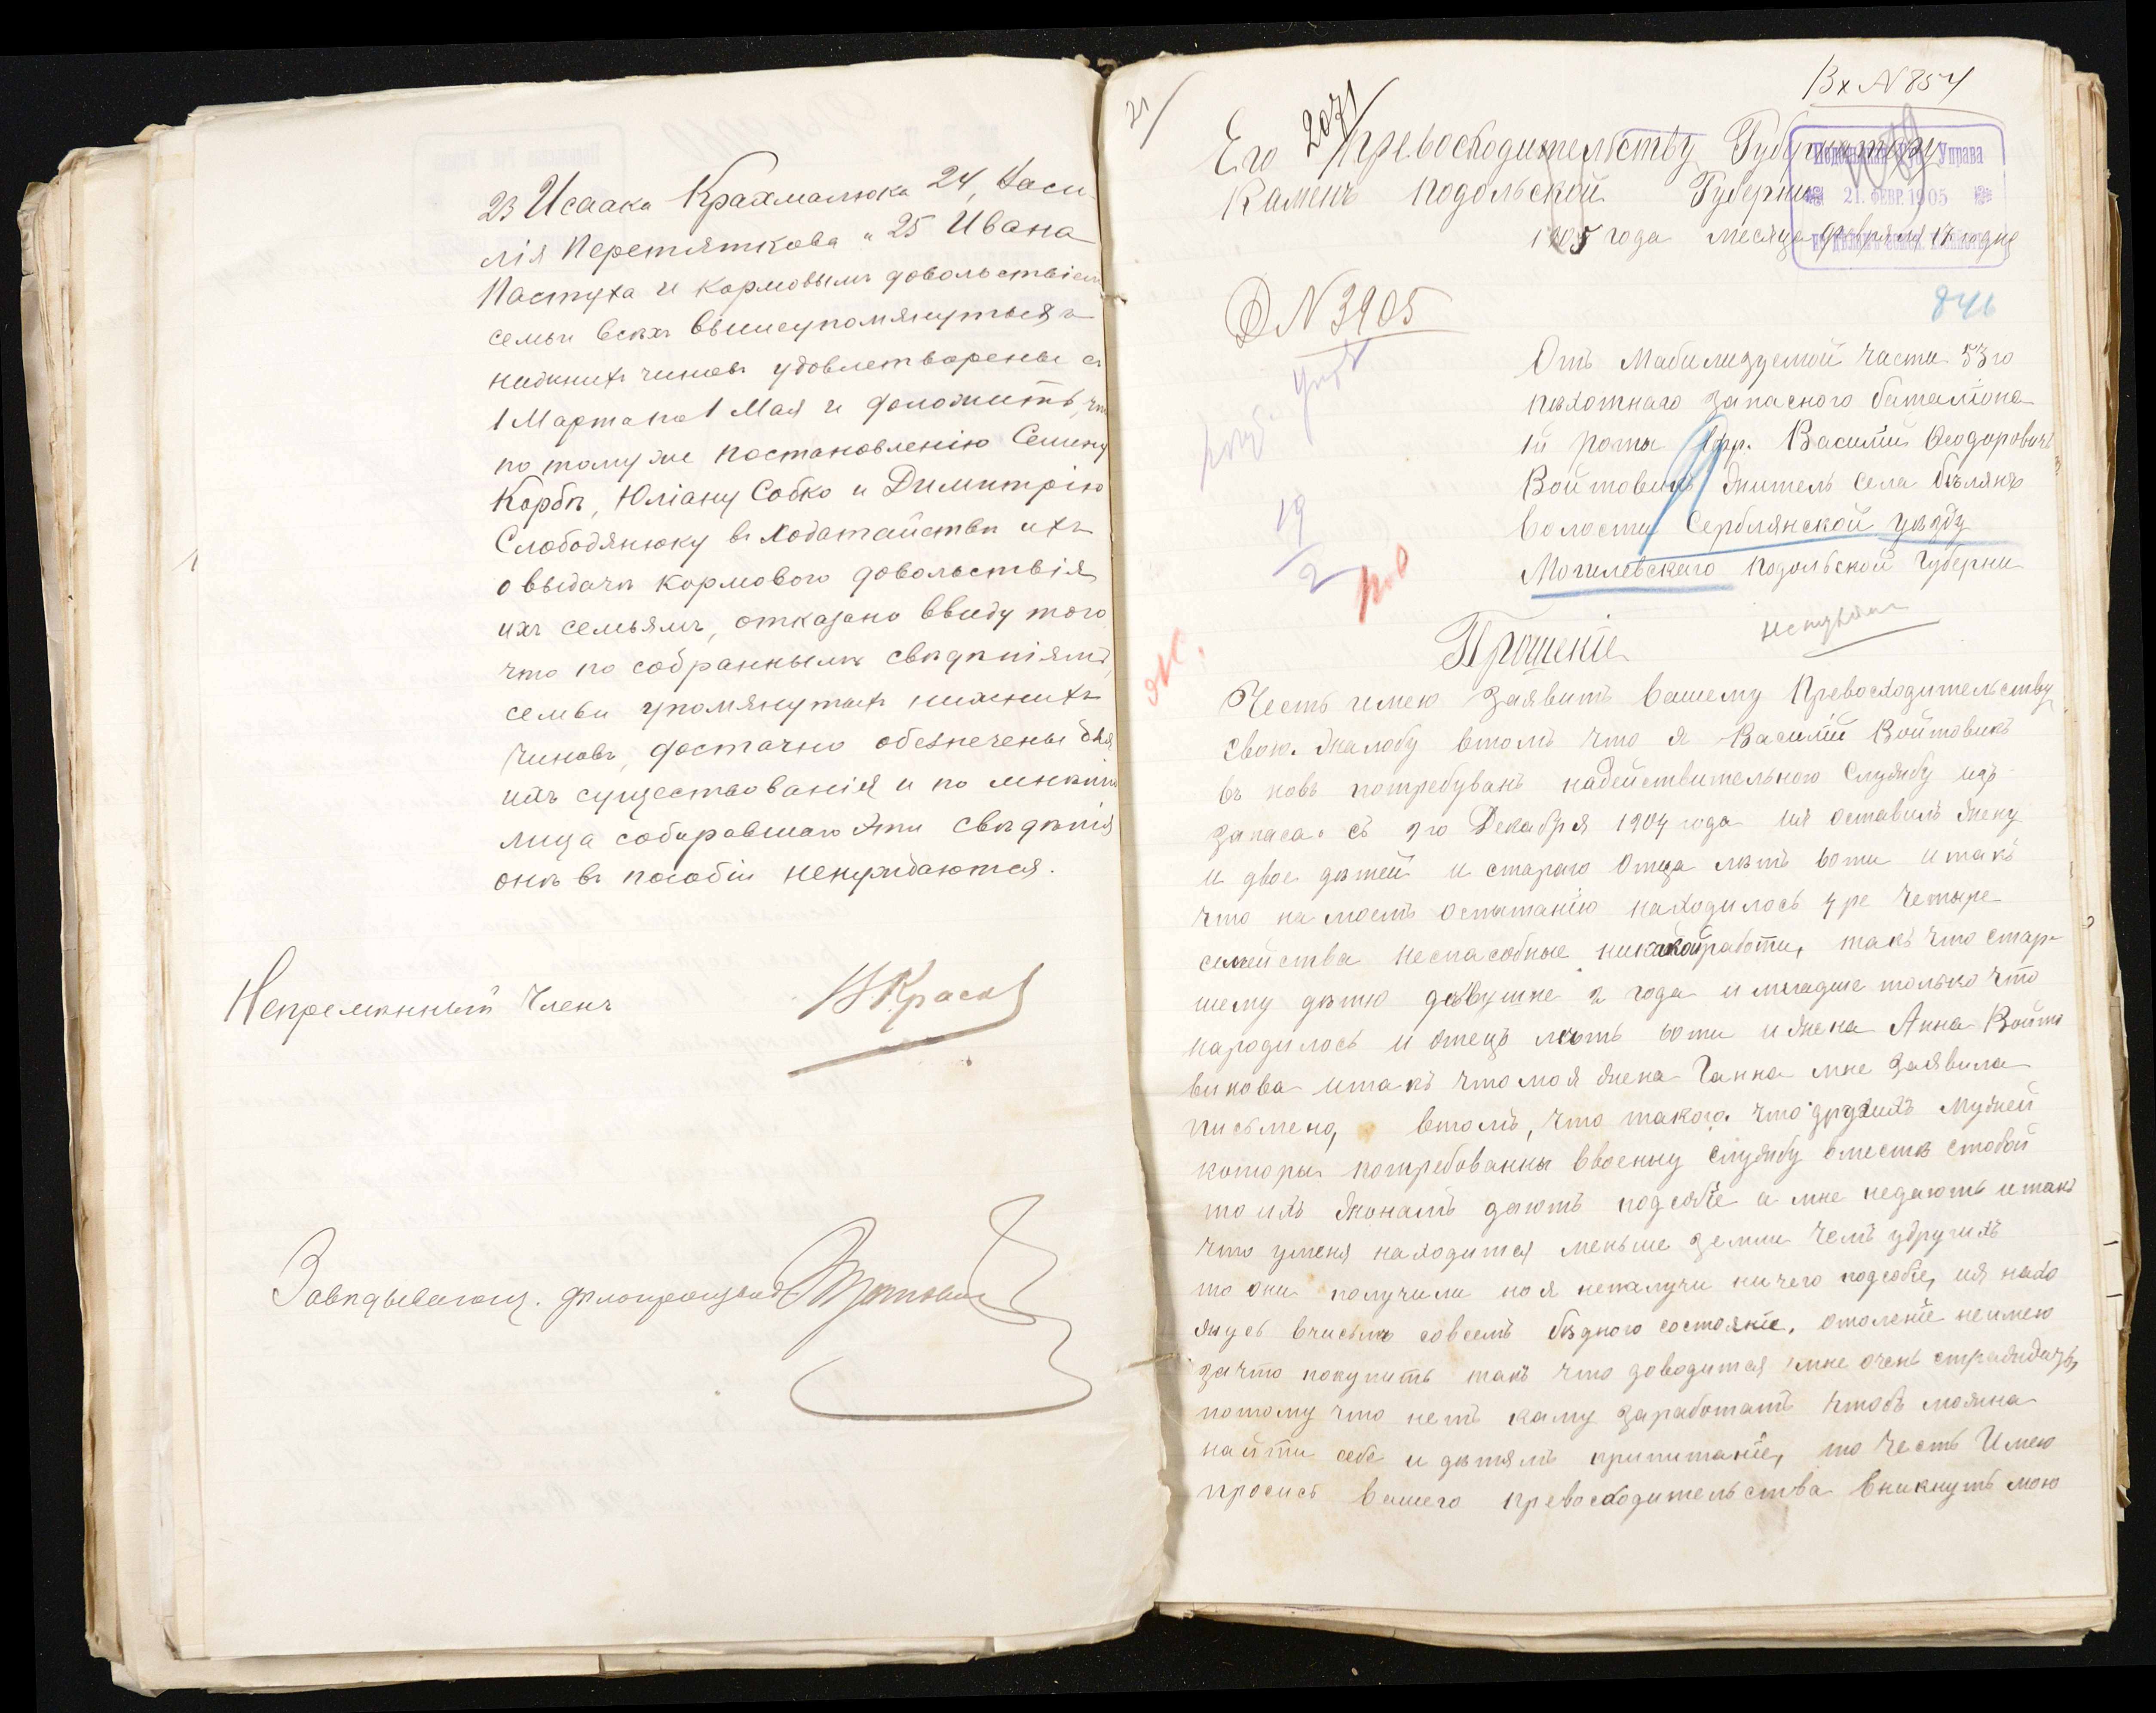 23 Исаака Крахмалюка 24, Васи-
лія Перетяткова „ 25 Ивана
Пастуха и кормовымъ довольствіем
семьи всѣхъ вышеупомянутыхъ
нижнихъ чиновъ удовлетворены съ
1 Марта по 1 Мая и доложить, что
по тому же постановленію Семену
Корбѣ, Юліану Собко и Димитрію
Слободянюку въ ходатайствѣ ихъ
о выдачѣ кормового довольствія
ихъ семьямъ, отказано ввиду того
что по собраннымъ свѣдѣніямъ,
семьи упомянутыхъ нижнихъ
чиновъ, достачно обезпечены для
ихъ существованія и по мнѣнію
лица собиравшаго эти свѣдѣнія
онѣ въ пособіи ненуждаются.
Непремѣнный Членъ
В Красов
Завѣдывающ. дѣлопроизвод
21/
2071
Вх N 854
Его Превосходительству Губернатору
Каменъ подольской Губерніи
1905 года месяца февраля 18 го дня
Подольская Губ. Управа
21. ФЕВР. 1905
D N 3905
846
19
2
Отъ Мабилизуемой части 53го
пѣхотнаго запасного баталіона
1й роты Ефр. Василий Феодоровичъ
Войтовикъ житель села бѣлянъ
волости Серблянской уѣзду
Могилевскаго подольской Губерни
Прошеніе
Честь имею заявить вашему Превосходительству
свою. жалобу втомъ что я Василій Войтовикъ
въ новъ потребуванъ надействительного службу изъ
запаса. съ 9го Декабря 1904 года ия оставилъ жену
и двое дѣтей и стараго Отца лѣтъ 60ти итакъ
что на моемъ оспытанію находилось уре Четыре
семейства неспасобные никакойработи, такъ что стар-
шему дѣтю дѣвушке 2 года и младше только что
народилось и отецъ лѣтъ 60ти ижена Анна Войто
викова итакъ что моя жена Ганна мне заявила
письмено, втомъ, что такого что другихъ мужей
которы потребованны ввоеную службу вместѣ стобой
то ихъ жонамъ даютъ подсобіе а мне недаютъ итакъ
что уменя находится меньше земли чемъ удругихъ
то они получили но я неталучи ничего подсобіе, ия нахо
жусь вчисьлѣ совсемъ бѣдного состояніе, отоленіе неимею
зачто покупить такъ что доводится мне очень стражидать,
потому что нетъ каму заработать чтобъ можна
найти себе и дѣтямъ припитаніе, то Честь Имею
просись вашего превосходительства вникнуть мою